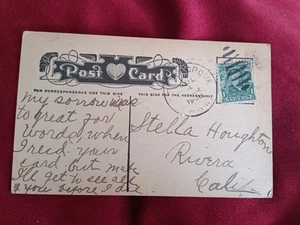 Post Card
FOR CORRESPONDENCE USE THIS SIDE
THIS SIDE FOR THE ADDRESS ONLY
my sorrow was
to great for
words when
I reid your
card but
I'll get to see all
of you before I die
Stella Houghton
Rivera
Calif